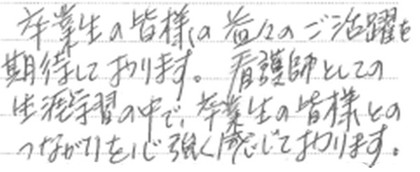 卒業生の皆様の益々のご活躍を
期待しております。看護師としての
生涯学習の中で、卒業生の皆様との
つながりを心強く感じております。